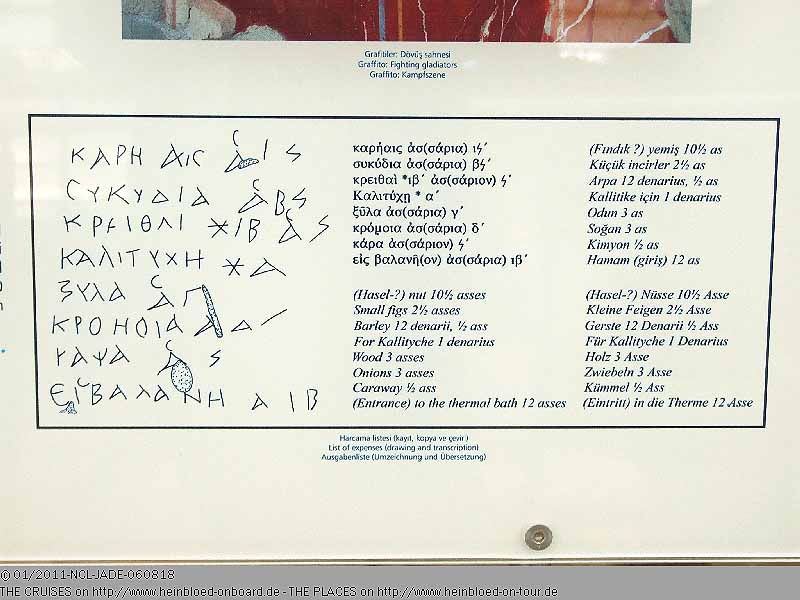 Grafitiler: Dövüş sahnesi
Graffito: Fighting gladiators
Graffito: Kampfszene
ΚΑΡΗ ΑΙϹ ΑϹ Ι S
ϹΥΚΥΔΙΑ ΑϹ Β S
ΚΡΕΙΘΑΙ ΙΒ ΑϹ S
ΚΑΛΙΤΥΧΗ Α
ΞΥΛΑ ΑϹ Γ
ΚΡΟΗΟΙΑ Α Δ
ΚΑΡΑ ΑϹ S
ΕΙϹ ΒΑΛΑΝΗ Α ΙΒ
καρήαις ἀσ(σάρια) ιϟ´
συκύδια ἀσ(σάρια) βϟ´
κρειθαὶ *ιβ´ ἀσ(σάριον) ϟ´
Καλιτύχῃ * α´
ξῦλα ἀσ(σάρια) γ´
κρόμοια ἀσ(σάρια) δ´
κάρα ἀσ(σάριον) ϟ´
εἰς βαλανῆ(ον) ἀσ(σάρια) ιβ´
(Fındık ?) yemiş 10½ as
Küçük incirler 2½ as
Arpa 12 denarius, ½ as
Kallitike için 1 denarius
Odun 3 as
Soğan 3 as
Kimyon ½ as
Hamam (giriş) 12 as
(Hasel-?) nut 10½ asses
Small figs 2½ asses
Barley 12 denarii, ½ ass
For Kallityche 1 denarius
Wood 3 asses
Onions 3 asses
Caraway ½ ass
(Entrance) to the thermal bath 12 asses
(Hasel-?) Nüsse 10½ Asse
Kleine Feigen 2½ Asse
Gerste 12 Denarii ½ Ass
Für Kallityche 1 Denarius
Holz 3 Asse
Zwiebeln 3 Asse
Kümmel ½ Ass
(Eintritt) in die Therme 12 Asse
Harcama listesi (kayıt, kopya ve çeviri)
List of expenses (drawing and transcription)
Ausgabenliste (Umzeichnung und Übersetzung)
©01/2011-NCL-JADE-060818
THE CRUISES on http://www.heinbloed-onboard.de - THE PLACES on http://www.heinbloed-on-tour.de